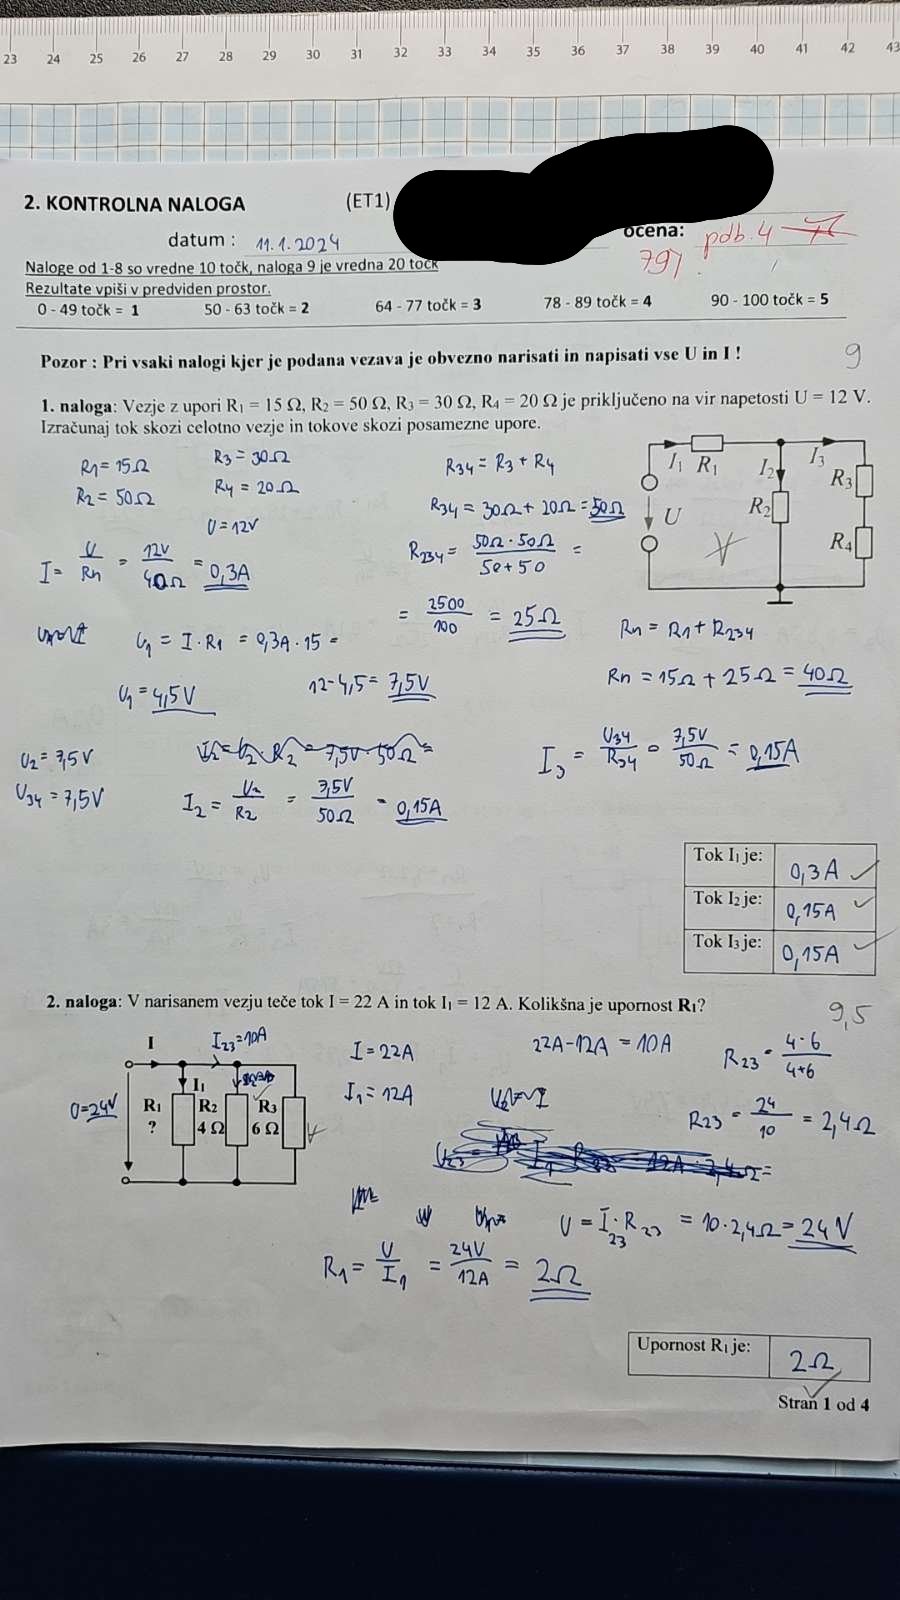 23 24 25 26 27 28 29 30 31 32 33 34 35 36 37 38 39 40 41 42 43
2. KONTROLNA NALOGA (ET1)
datum : 11.1.2024 ocena: pdb. 4
79/
Naloge od 1-8 so vredne 10 točk, naloga 9 je vredna 20 točk
Rezultate vpiši v predviden prostor.
0 - 49 točk = 1 50 - 63 točk = 2 64 - 77 točk = 3 78 - 89 točk = 4 90 - 100 točk = 5
Pozor : Pri vsaki nalogi kjer je podana vezava je obvezno narisati in napisati vse U in I !
9
1. naloga: Vezje z upori R1 = 15 Ω, R2 = 50 Ω, R3 = 30 Ω, R4 = 20 Ω je priključeno na vir napetosti U = 12 V.
Izračunaj tok skozi celotno vezje in tokove skozi posamezne upore.
R1 = 15Ω R3 = 30Ω R34 = R3 + R4
R2 = 50Ω R4 = 20Ω R34 = 30Ω + 20Ω = 50Ω
U = 12V
I1 R1 I2 I3 R3
U R2 R4
I = U/Rn = 12V/40Ω = 0,3A
R234 = 50Ω · 50Ω / 50 + 50 =
= 2500/100 = 25Ω
U1 = I · R1 = 0,3A · 15 =
Rn = R1 + R234
U1 = 4,5V 12-4,5 = 7,5V Rn = 15Ω + 25Ω = 40Ω
U2 = 7,5V I2 = U2 · R2 = 7,5V · 50Ω = I3 = U34/R34 = 7,5V/50Ω = 0,15A
U34 = 7,5V I2 = U2/R2 = 7,5V/50Ω = 0,15A
Tok I1 je: 0,3A
Tok I2 je: 0,15A
Tok I3 je: 0,15A
2. naloga: V narisanem vezju teče tok I = 22 A in tok I1 = 12 A. Kolikšna je upornost R1?
9,5
I I23=10A I = 22A 22A-12A = 10A R23 = 4·6/4+6
I1 I1 = 12A
U=24V R1 R2 R3 R23 = 24/10 = 2,4Ω
? 4 Ω 6 Ω
U = I23 · R23 = 10 · 2,4Ω = 24V
R1 = U/I1 = 24V/12A = 2Ω
Upornost R1 je: 2Ω
Stran 1 od 4